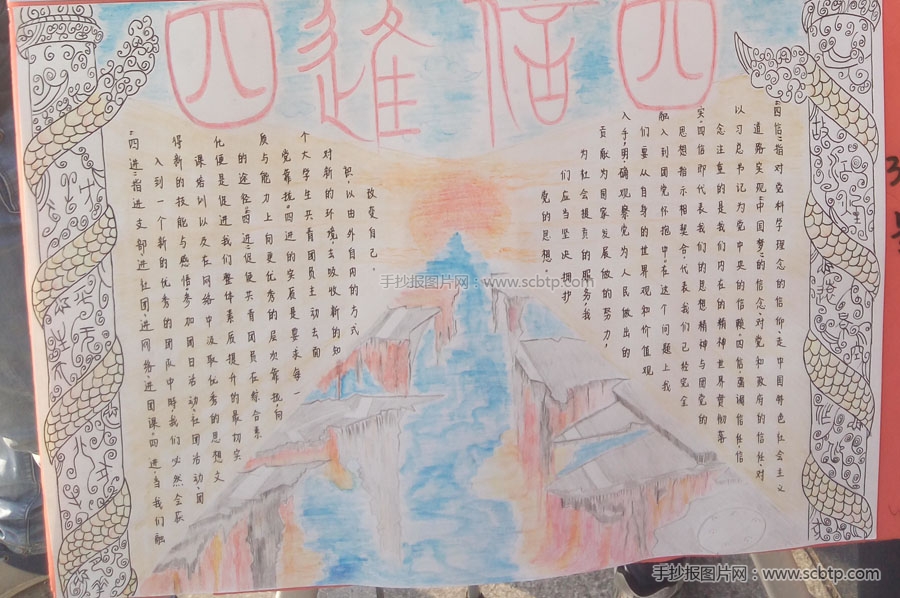 四進信四
"四信"指对党科学理念的信仰,走中国特色社会主义
道路实现"中国梦"的信念,对党和政府的信任,对
以习总书记为党中央的信赖四信强调信任信
念注重的是我们内在的精神世界贯彻落
实,四信即代表我们的思想精神与团党的
思想指示相契合,代表我们已经完全
融入到团党怀抱中,在这个问题上我
们要从自身的世界观和价值观
入手,明确观察党为人民做出的
贡献为国家发展做的努力,
为社会提贡的服务我
们应当坚决拥护
党的思想.
"四进"指进支部,进社团,进网络,进团课四进,当我们融
入到一个新的优秀的团队中时,我们必然会获
得新的技能与感悟参加团日活动,社团活动,团
课培训以及在网络中汲取优秀的思想文
化便是促进我们整体素质提升的最切实
的途径,四进促使共青团员在综合素
质与能力上向更优秀的层次靠拢,向
党靠拢.四进的实质是要求每一
个大学生共青团员主动去面
对新的环境,去吸收新的知
识,以由外自内的方式
改变自己.
手抄报图片网:www.scbtp.com
手抄报图片网:www.scbtp.com